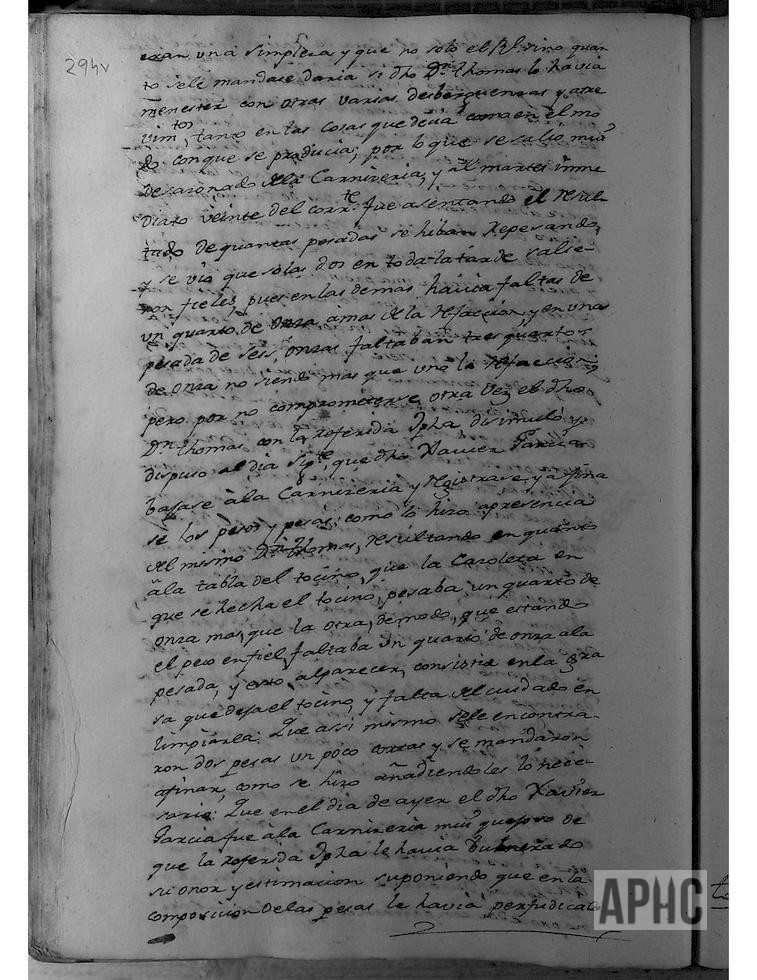 294v
eran una simpleza y que no solo el Rl. vino quan
to sele mandase daria si dho Dn. Thomas lo havia
menester con otras varias desberguenzas y atre
vimtos, tanto en las cosas que decia como en el mo
do con que se producia; por lo que se salio mui
desazonado de la Carnizeria, y al martes inme
diato veinte del corrte. fue asentando el resul
tado de quantas pesadas se hiban repesando,
y se vio que solas dos en toda la tarde salie
ron fieles, pues en las demas havia faltas de
un quarto de onza amas de la refaccion y en una
pesada de seis onzas faltaban tres quartos
de onza no siendo mas que una la refaccion;
pero por no comprometerse otra vez el dho
Dn. Thomas con la referida Jpha disimuló y
dispuso al dia sigte. que dho Xavier Garcia
bajase à la Carnizeria y registrase y afina
se los pesos y pesas, como lo hizo apresencia
del mismo Dn. Thomas, resultando en quanto
à la tabla del tocino, que la Cazoleta en
que se hecha el tocino, pesaba un quarto de
onza mas, que la otra, de modo, que estando
el peso en fiel faltaba un quarto de onza ala
pesada, y esto alparecer, consistia en la gra
sa que deja el tocino, y falta del cuidado en
limpiarla: Que assi mismo sele encontra
ron dos pesas un poco cortas y se mandaron
afinar, como se hizo añadiendoles lo nece
sario: Que en el dia de ayer el dho Xavier
Garcia fue à la Carnizeria mui quejoso de
que la referida Jpha le havia vulnerado
su onor y estimacion suponiendo que en la
composicion de las pesas le havia perjudicado
APHC